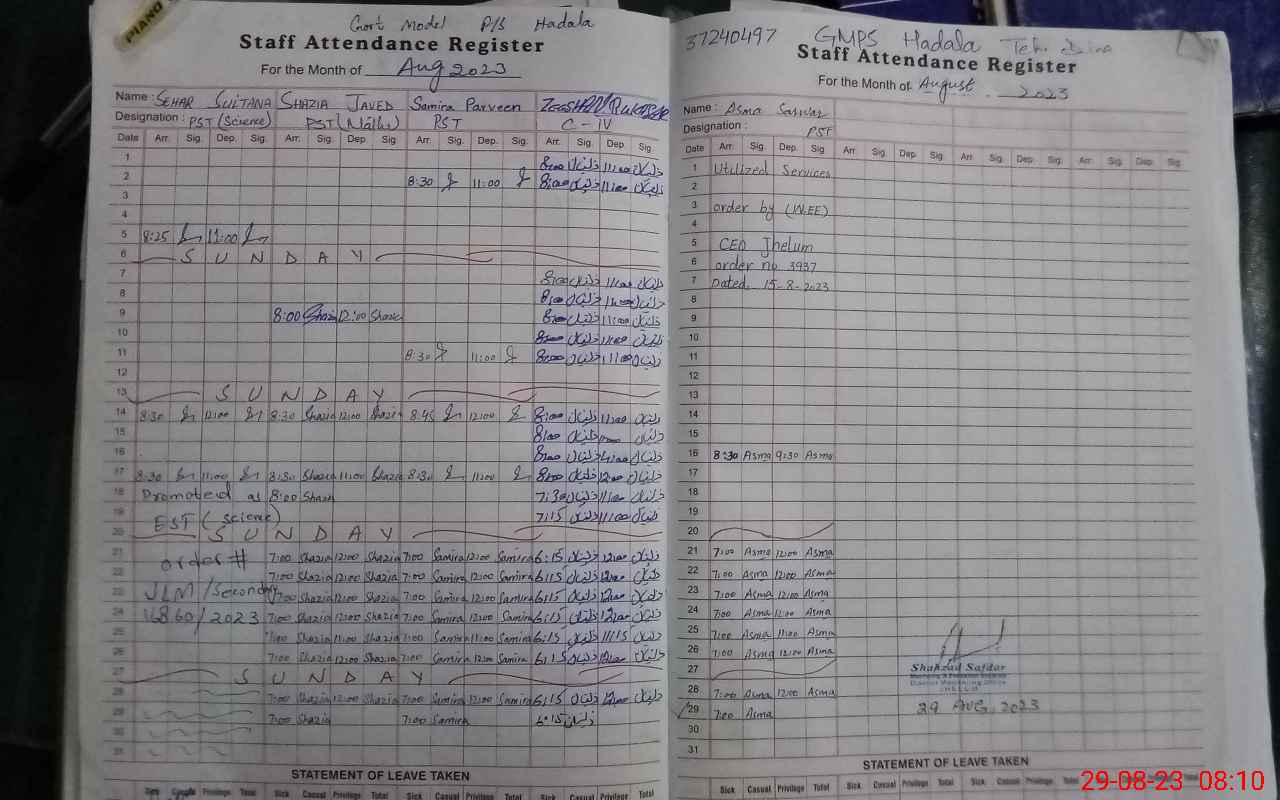 PIANO
Govt Model P/S Hadala
Staff Attendance Register
For the Month of Aug 2023
Name : SEHAR SULTANA SHAZIA JAVED Samira Parveen
Designation : PST (Science) PST (Maths) PST C - IV
Date Arr. Sig. Dep. Sig. Arr. Sig. Dep. Sig. Arr. Sig. Dep. Sig. Arr. Sig. Dep. Sig.
1 8:00 دانیال 11:00 دانیال
2 8:30 11:00 8:00 دانیال 11:00 دانیال
3
4
5 8:25 11:00
6 S U N D A Y
7 8:00 دانیال 11:00 دانیال
8 8:00 دانیال 11:00 دانیال
9 8:00 Shazia 12:00 Shazia 8:00 دانیال 11:00 دانیال
10 8:00 دانیال 11:00 دانیال
11 8:30 11:00 8:00 دانیال 11:00 دانیال
12
13 S U N D A Y
14 8:30 12:00 8:30 Shazia 12:00 Shazia 8:45 12:00 8:00 دانیال 11:00 دانیال
15 8:00 دانیال دانیال
16 8:00 دانیال دانیال
17 8:30 11:00 8:30 Shazia 11:00 Shazia 8:30 11:00 8:00 دانیال 12:00 دانیال
18 Promoted as 8:00 Shazia 7:30 دانیال 11:00 دانیال
19 EST (science) 7:15 دانیال 11:00 دانیال
20 S U N D A Y
21 order # 7:00 Shazia 12:00 Shazia 7:00 Samira 12:00 Samira 6:15 دانیال 12:00 دانیال
22 7:00 Shazia 12:00 Shazia 7:00 Samira 12:00 Samira 6:15 دانیال 12:00 دانیال
23 JLM/Secondry 7:00 Shazia 12:00 Shazia 7:00 Samira 12:00 Samira 6:15 دانیال 12:00 دانیال
24 16860/2023 7:00 Shazia 12:00 Shazia 7:00 Samira 12:00 Samira 6:15 دانیال 12:00 دانیال
25 7:00 Shazia 11:00 Shazia 7:00 Samira 11:00 Samira 6:15 دانیال 11:15 دانیال
26 7:00 Shazia 12:00 Shazia 7:00 Samira 12:00 Samira 6:15 دانیال 12:00 دانیال
27 S U N D A Y
28 7:00 Shazia 12:00 Shazia 7:00 Samira 12:00 Samira 6:15 دانیال 12:00 دانیال
29 7:00 Shazia 7:00 Samira 6:15 دانیال
30
31
STATEMENT OF LEAVE TAKEN
Sick Casual Privilege Total Sick Casual Privilege Total Sick Casual Privilege Total Sick Casual Privilege Total
37240497 GMPS Hadala Teh. Dina
Staff Attendance Register
For the Month of August 2023
Name : Asma Sarwar
Designation : PST
Date Arr. Sig. Dep. Sig. Arr. Sig. Dep. Sig. Arr. Sig. Dep. Sig. Arr. Sig. Dep. Sig.
1 Utilized Services
2
3 order by (W.EE)
4
5 CEO Jhelum
6 order no 3937
7 Dated. 15-8-2023
8
9
10
11
12
13
14
15
16 8:30 Asma 9:30 Asma
17
18
19
20
21 7:00 Asma 12:00 Asma
22 7:00 Asma 12:00 Asma
23 7:00 Asma 12:00 Asma
24 7:00 Asma 12:00 Asma
25 7:00 Asma 11:00 Asma
26 7:00 Asma 12:00 Asma
27
Shahzad Safdar
Monitoring & Evaluation Assistant
District Monitoring Office
JHELUM
28 7:00 Asma 12:00 Asma
29 7:00 Asma
29 AUG 2023
30
31
STATEMENT OF LEAVE TAKEN
Sick Casual Privilege Total Sick Casual Privilege Total Sick Casual Privilege Total
29-08-23 08:10